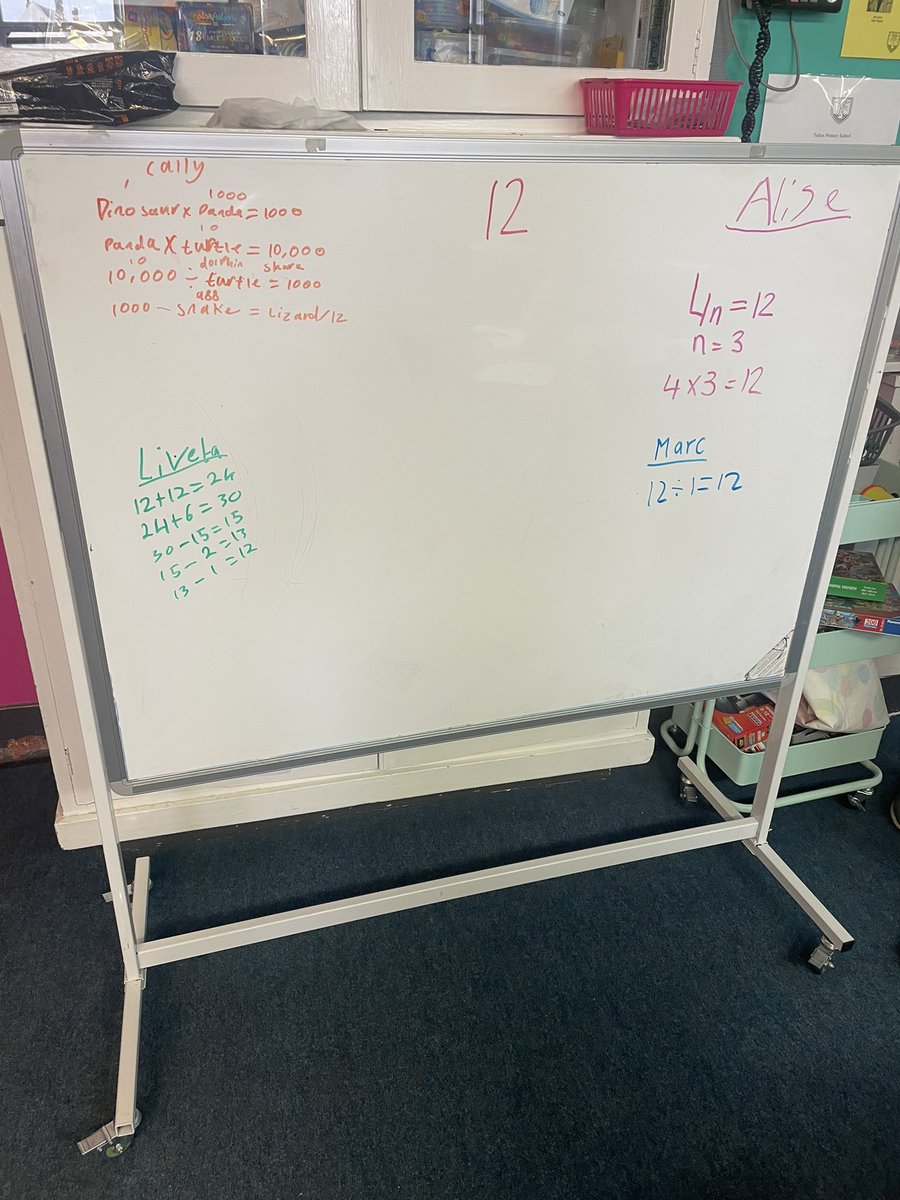 cally
1000
Dinosaur x Panda = 1000
10
Panda X turtle = 10,000
10 dolphin shark
10,000 ÷ turtle = 1000
988
1000 - snake = Lizard/12
12
Alise
4n = 12
n = 3
4 x 3 = 12
Liveta
12+12=24
24+6=30
30-15=15
15-2=13
13-1=12
Marc
12÷1=12
Primary School
200